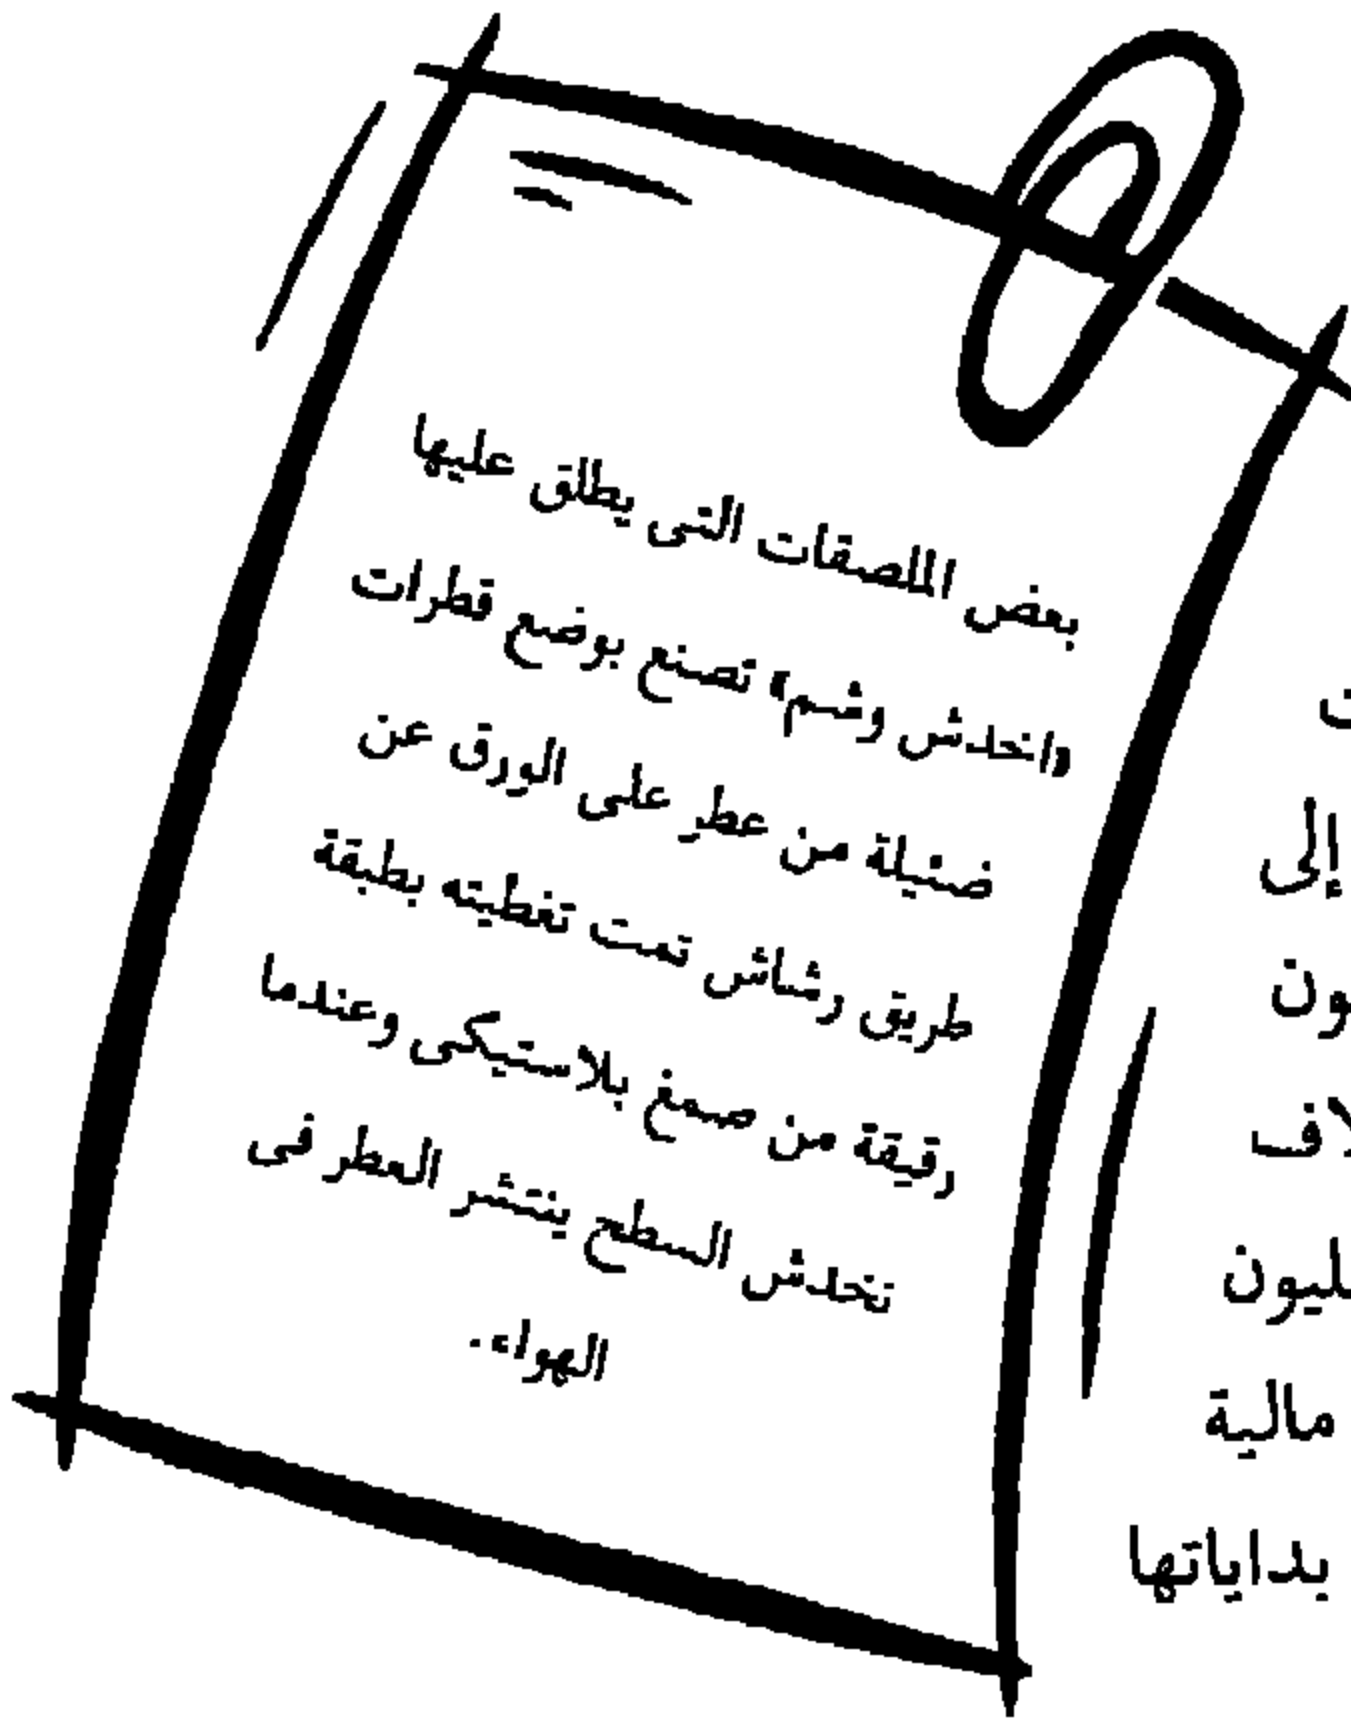 بعض الملصقات التى يطلق عليها
«اخدش وشم» تصنع بوضع قطرات
ضئيلة من عطر على الورق عن
طريق رشاش تمت تغطيته بطبقة
رقيقة من صمغ بلاستيكى وعندما
تخدش السطح ينتشر العطر فى
الهواء.
إلى
مالية
بداياتها